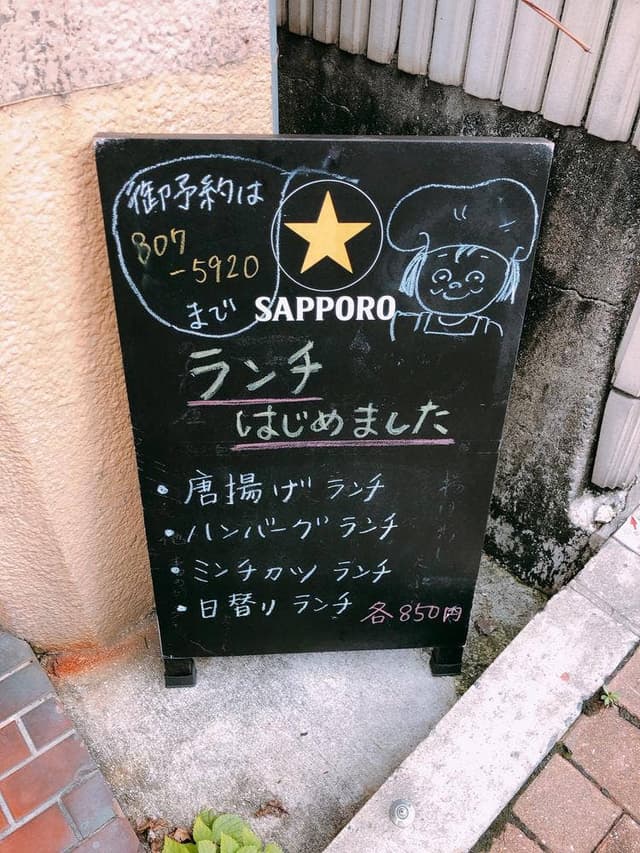 御予約は
807
-5920
まで
SAPPORO
ランチ
はじめました
・唐揚げランチ
・ハンバーグランチ
・ミンチカツランチ
・日替りランチ 各850円